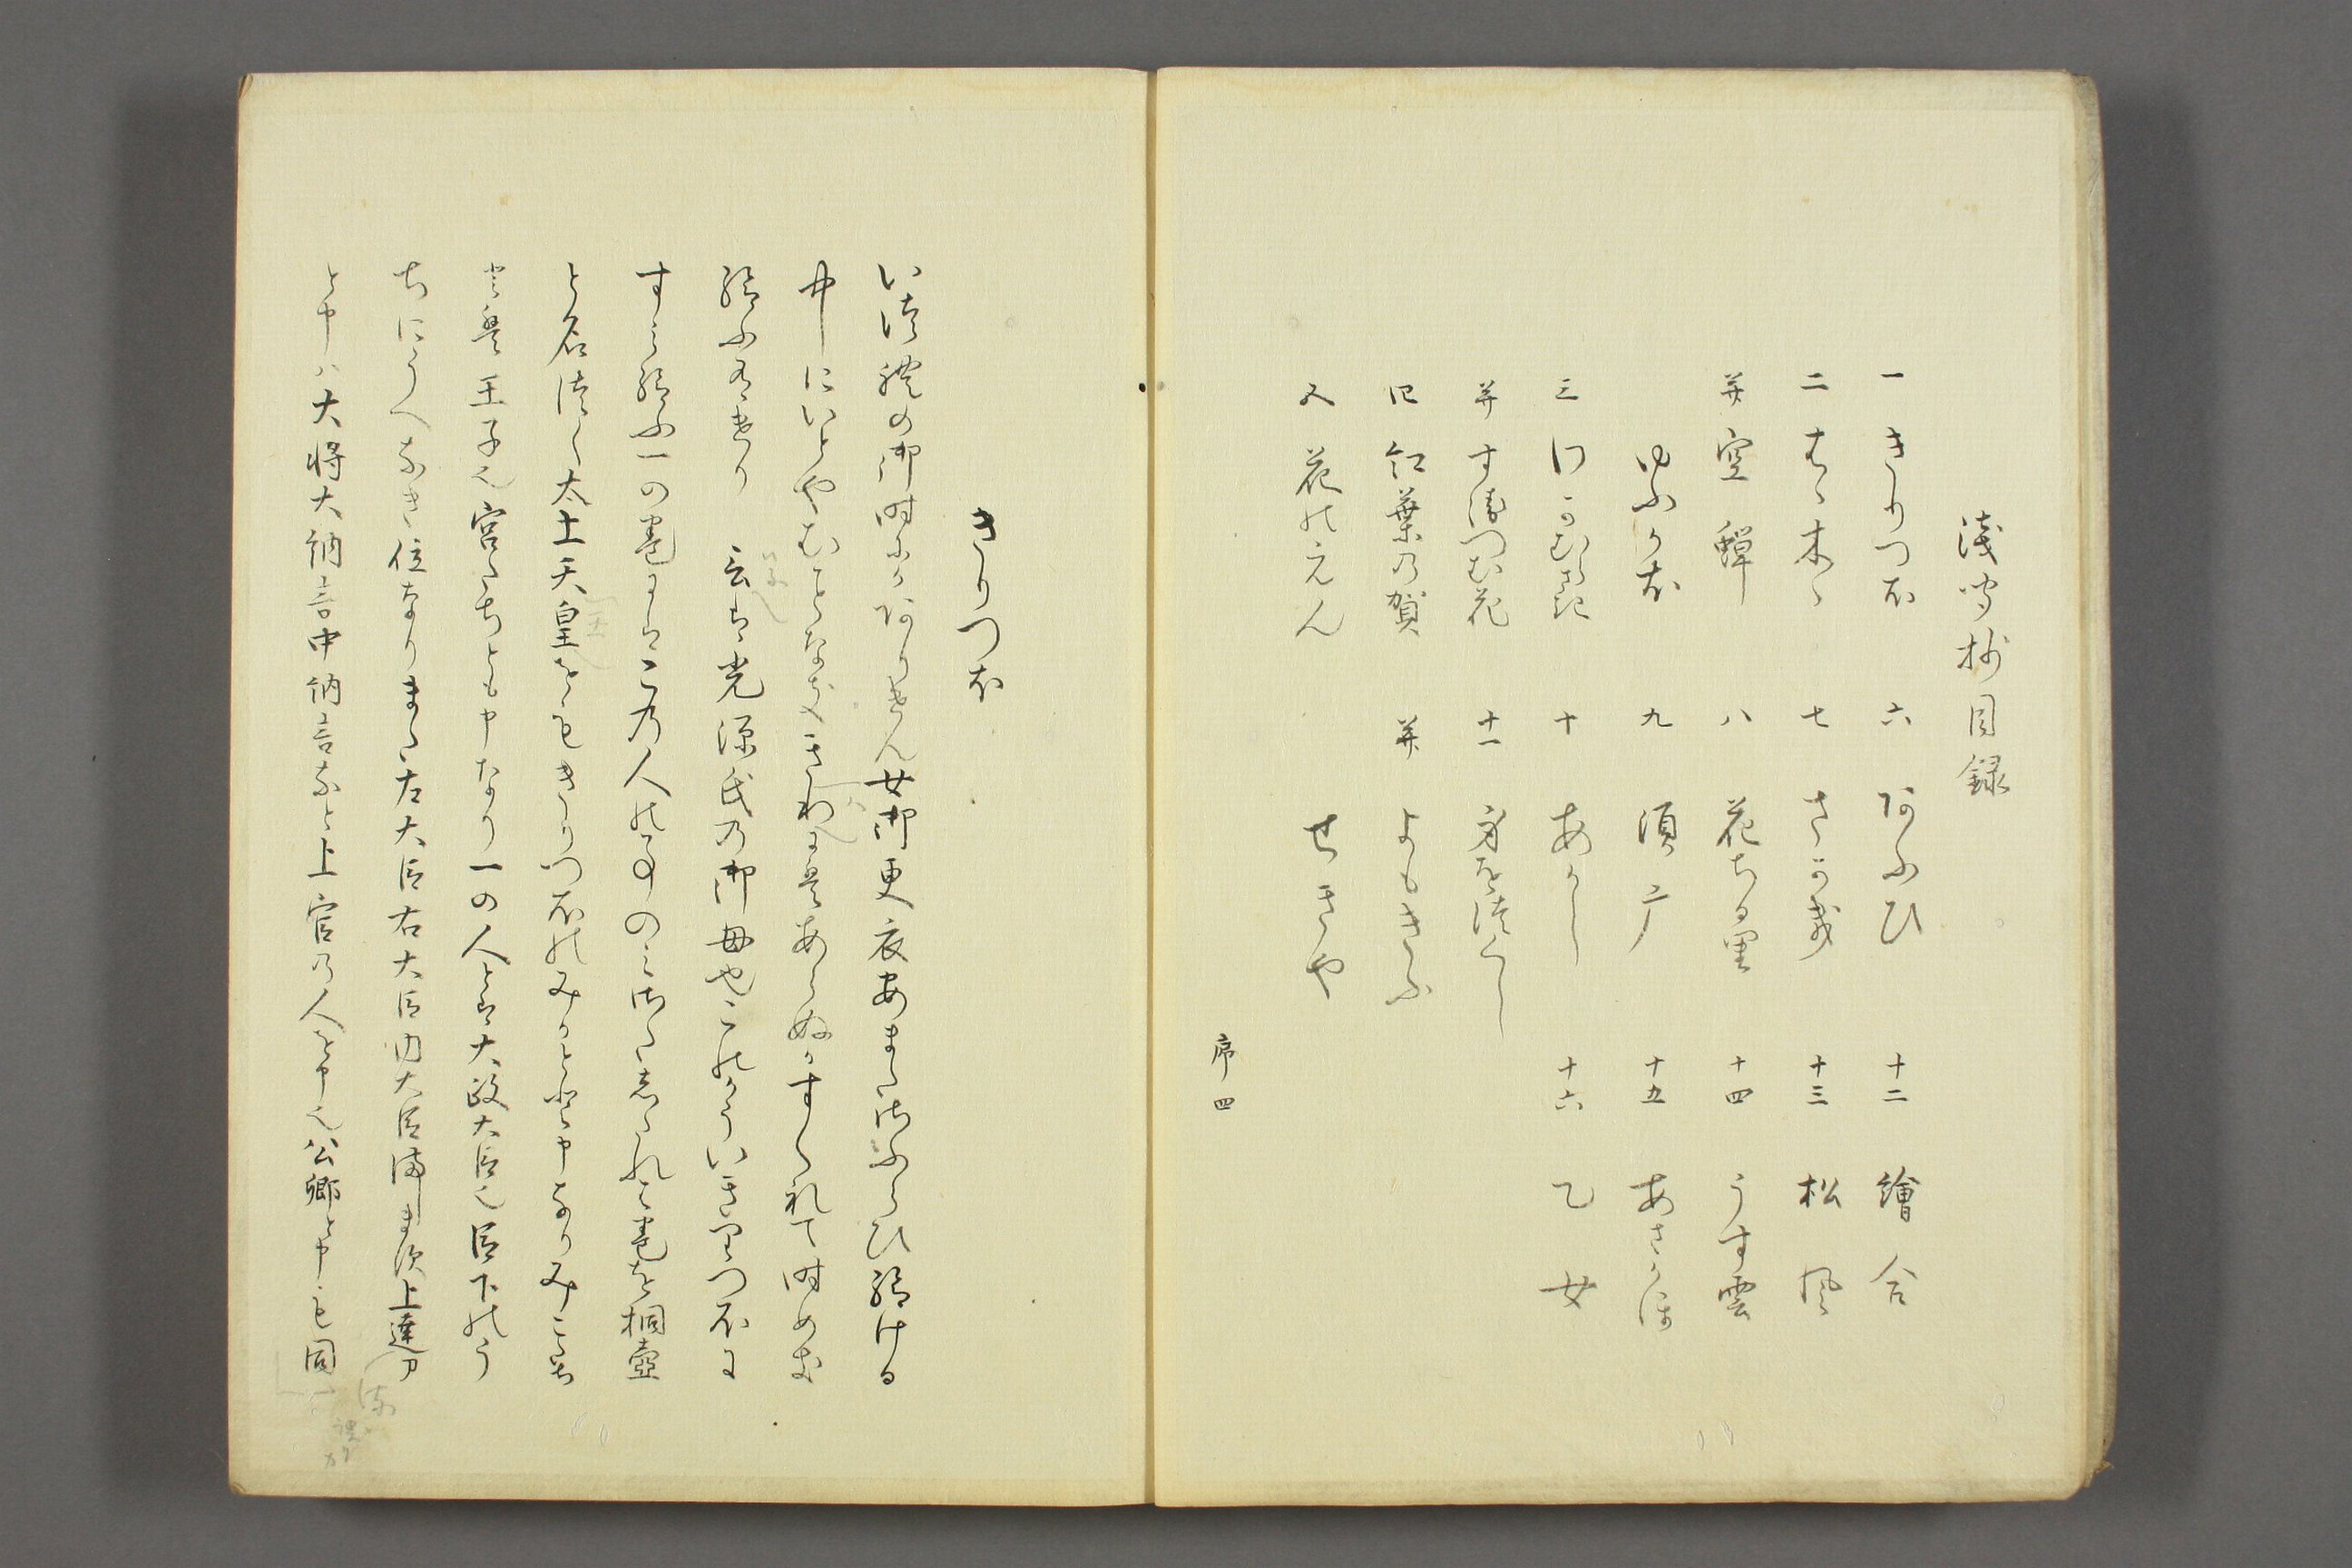 浅聞抄目録
一 きりつほ 六 あふひ 十二 繪合
二 はゝ木ゝ 七 さか木 十三 松風
并 空蝉 八 花ちる里 十四 うす雲
ゆふかほ 九 須广 十五 あさかほ
三 わかむらさき 十 あかし 十六 乙女
并 すゑつむ花 十一 身を徒くし
四 紅葉乃賀 并 よもきふ
五 花のえん せきや
序四
きりつほ
い徒禮の御時にかありけん女御更衣あまたさふらひ給ける
中にいとやむことなきゝわには あらぬかすくれて時めき
給ふ有けり 云は光源氏乃御母也このかういきりつほに
すみ給ふ一の巻にはこ乃人の事のみさたしたれは巻を桐壺
と名徒く太上天皇をもきりつほのみかとゝ申なりみこたち
とは王子也宮たちとも申なり一の人とは大政大臣也臣下のう
ちにうへなき位なりまた左大臣右大臣内大臣
と申ハ大将大納言中納言なと上官乃人を申也公卿と申も同